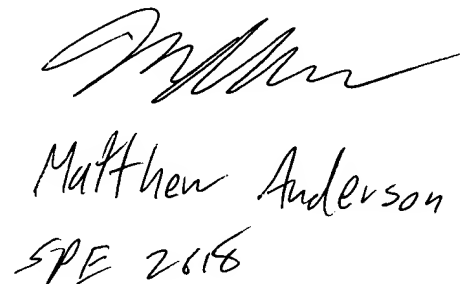 Matthew Anderson
SPE 2618